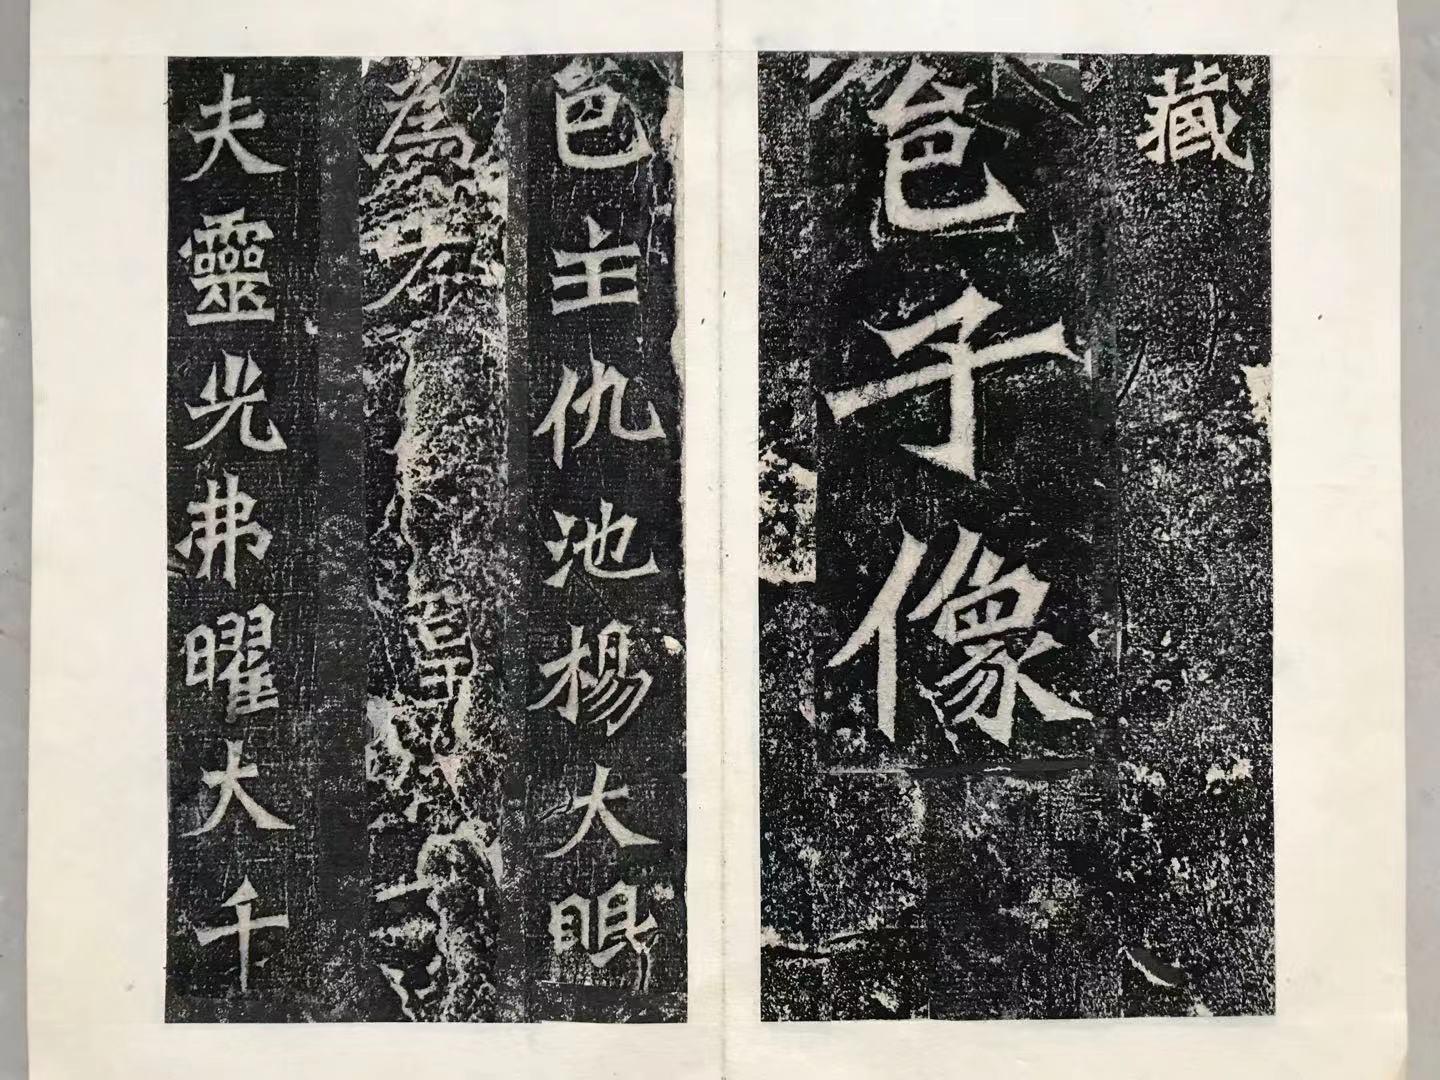 藏
邑子像
邑主仇池楊大眼
為孝皇
夫靈光弗曜大千